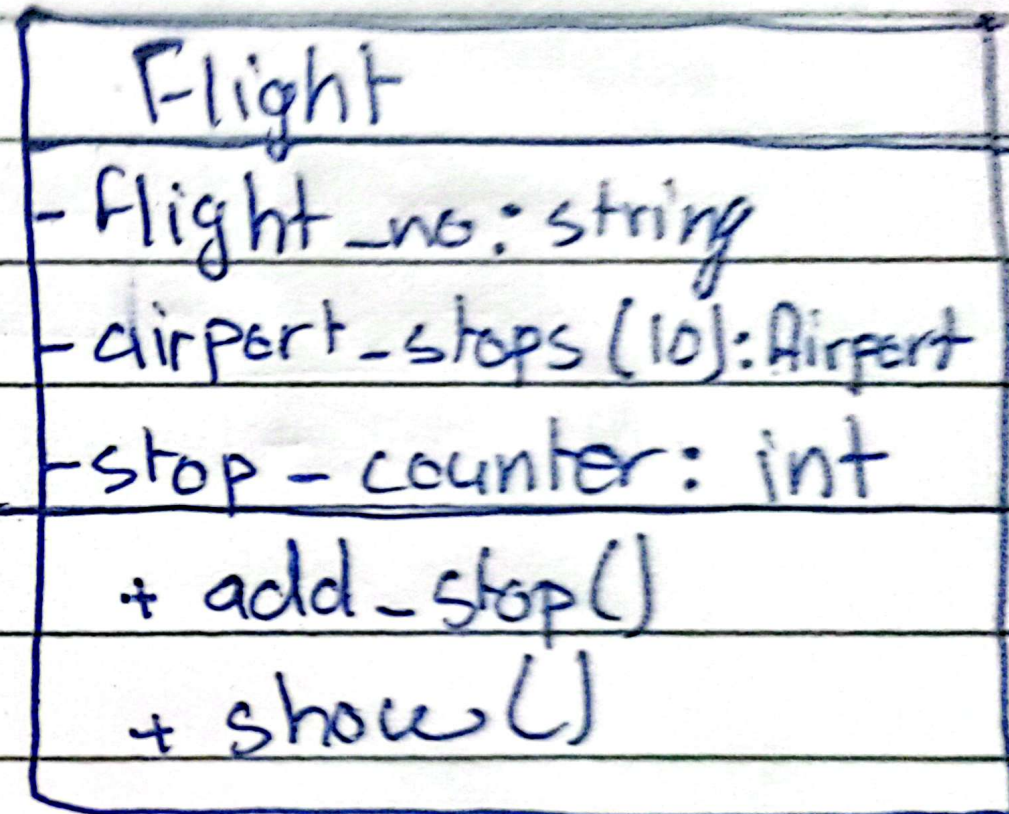 Flight
- flight_no: string
- airport_stops (10): Airport
- stop_counter: int
+ add_stop()
+ show()